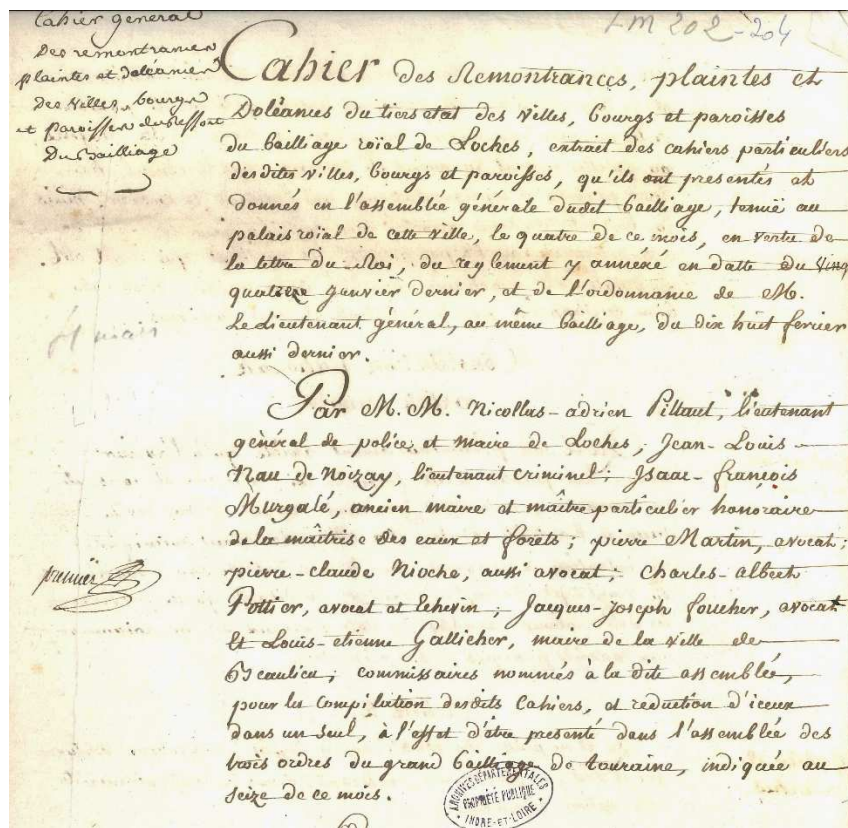 Cahier général
Des remontrances
plaintes et doléances
Des villes, bourgs
et paroisses du Ressort
Du Bailliage
LM 202-204
Cahier des Remontrances, plaintes et
Doléances du tiers etat des villes, bourgs et paroisses
du bailliage roïal de Loches, extrait des cahiers particuliers
desdites villes, bourgs et paroisses, qu'ils ont presentés et
donnés en l'assemblée générale dudit bailliage, tenuë au
palais roïal de cette ville, le quatre de ce mois, en vertu de
la lettre du Roi, du reglement y annéxé en datte du vingt
quatre janvier dernier, et de l'ordonnance de M.
Le Lieutenant général, au même bailliage, du dix huit fevrier
aussi dernier.
Par M. M. Nicollas-adrien Pillaut, lieutenant
général de police et maire de Loches; Jean-Louis
Nau de Noizay, lieutenant criminel; Isaac-françois
Murgalé, ancien maire et maître particulier honoraire
de la maîtrise des eaux et forêts; pierre Martin, avocat;
premier
pierre-claude Nioche, aussi avocat; Charles-albert
Pottier, avocat et Echevin; Jacques-Joseph foucher, avocat
Et Louis-etienne Gallicher, maire de la ville de
Beaulieu; commissaires nommés à la dite assemblée,
pour la compilation desdits Cahiers, et reduction d'iceux
dans un seul, à l'effet d'être presenté dans l'assemblée des
trois ordres du grand bailliage de touraine, indiquée au
seize de ce mois.
ARCHIVES DÉPARTEMENTALES
PROPRIÉTÉ PUBLIQUE
INDRE-ET-LOIRE